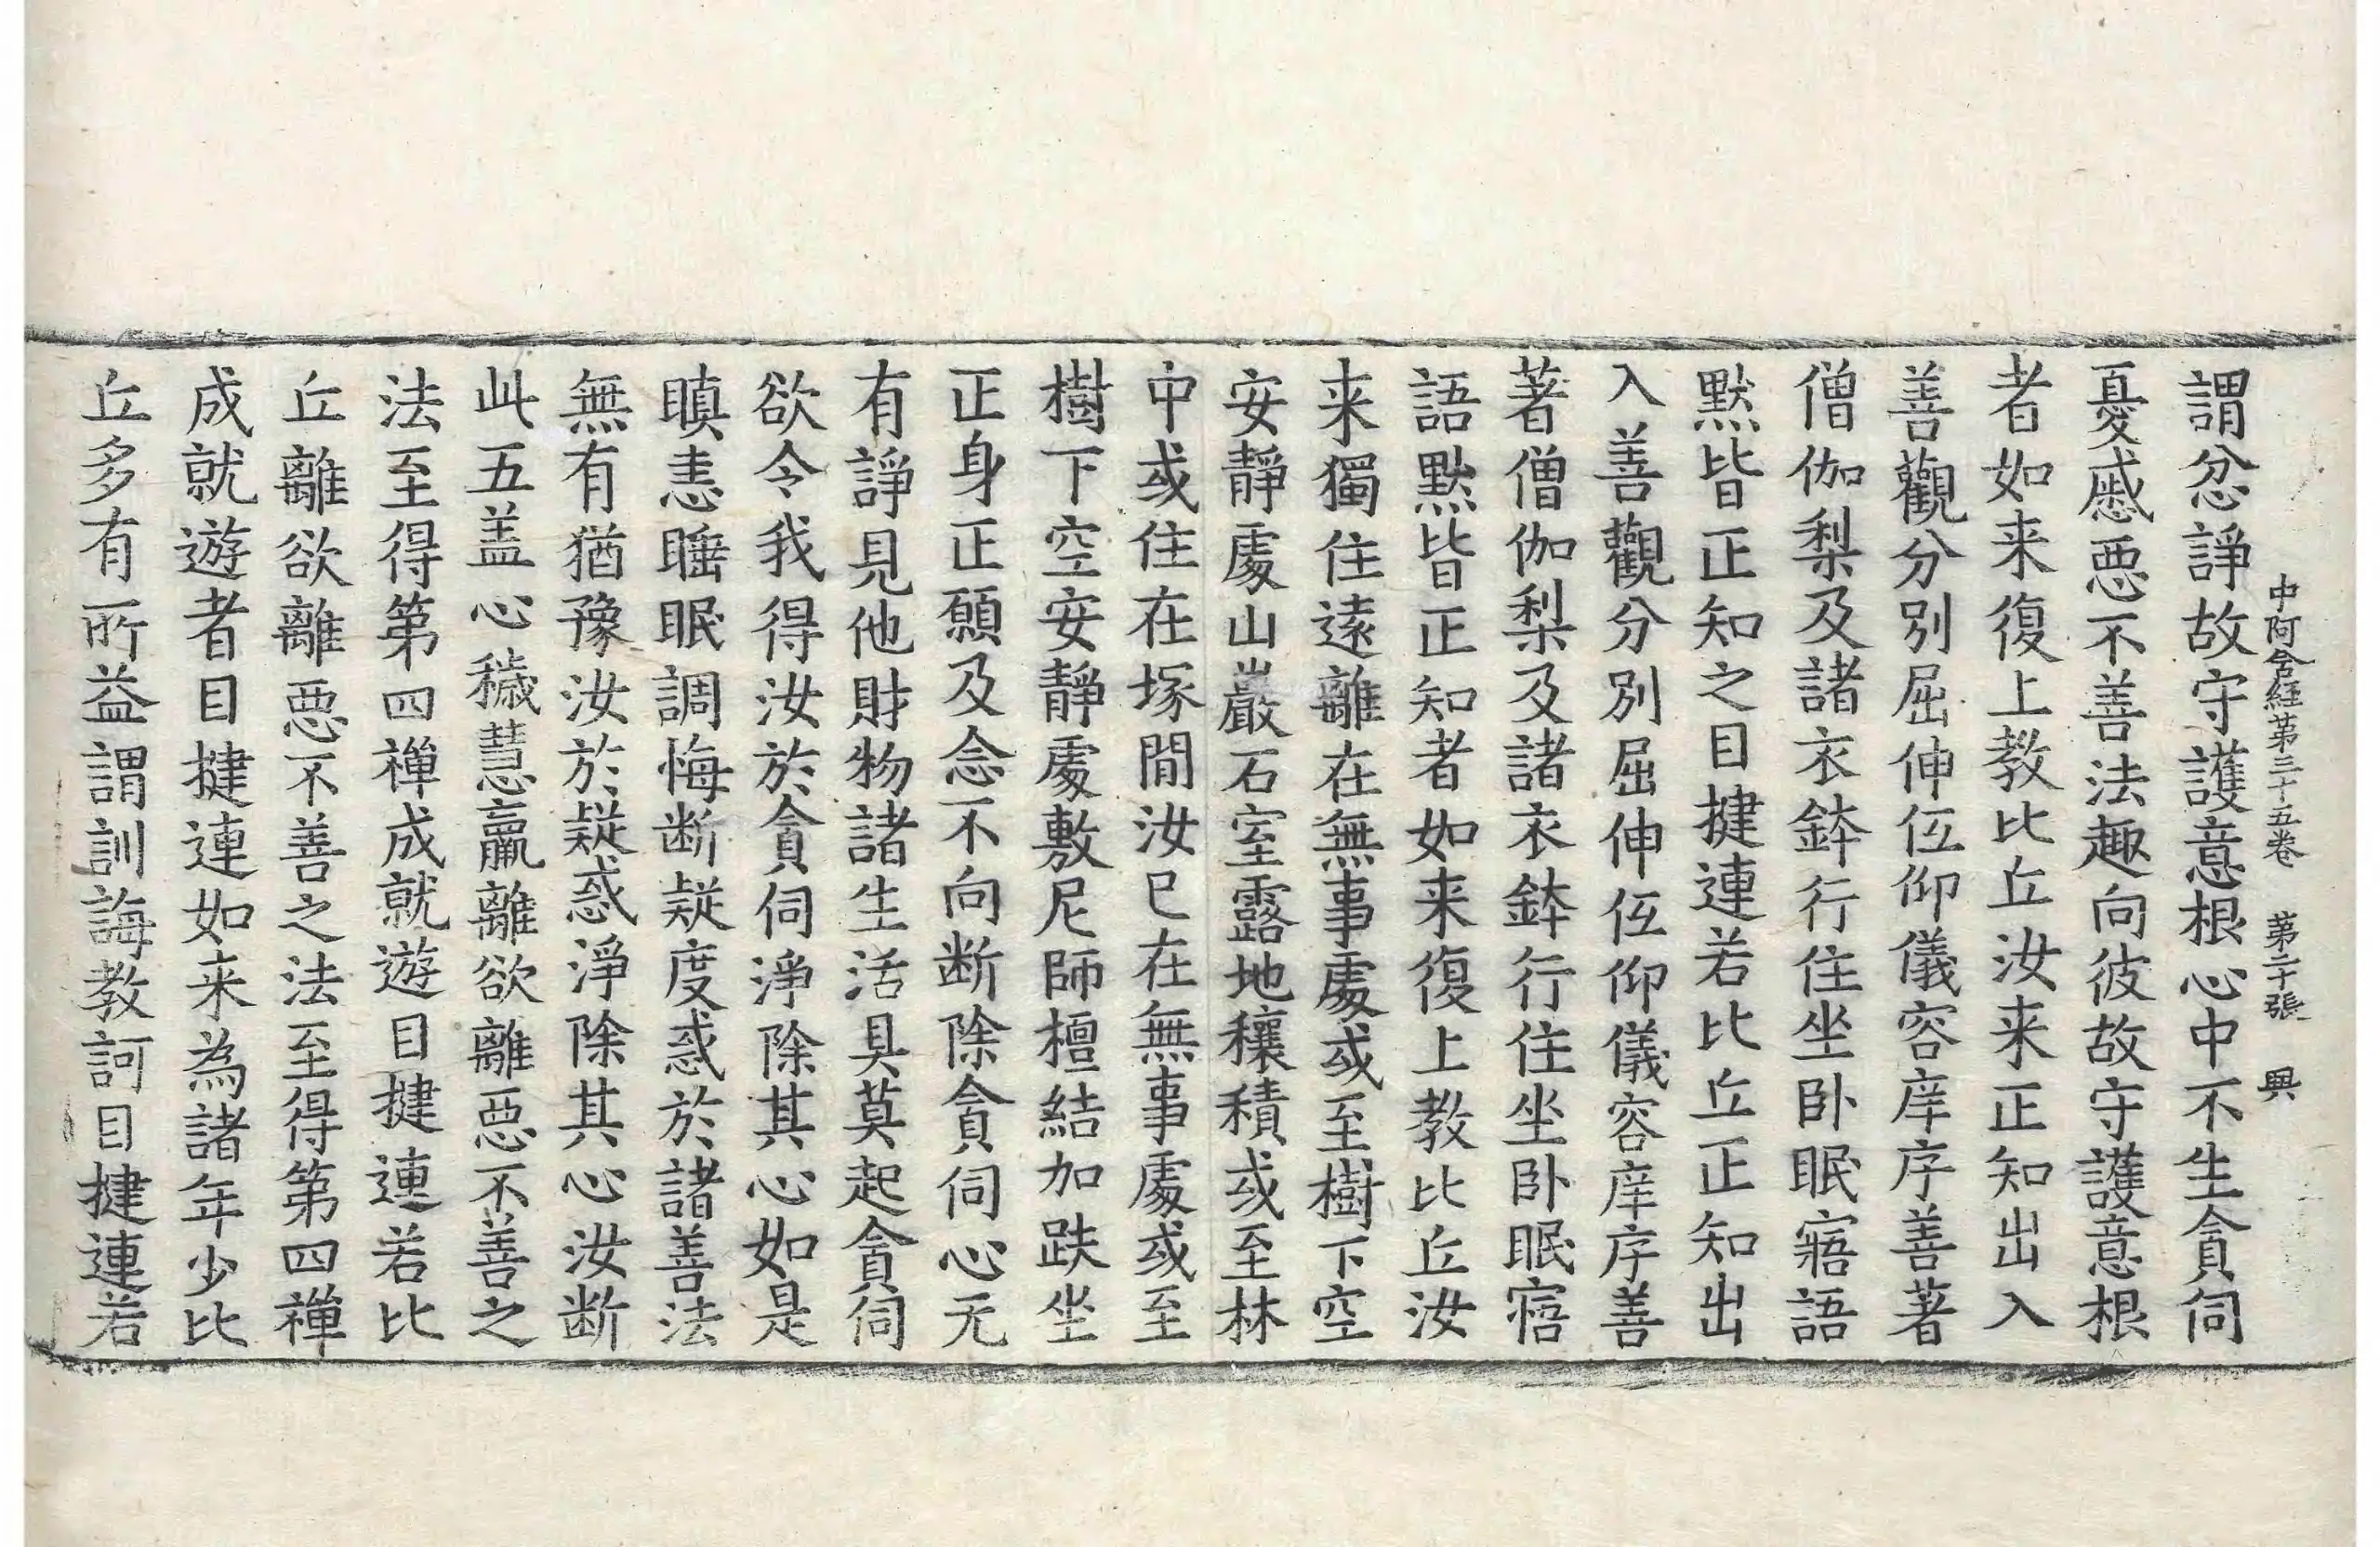 中阿含經第三十五卷 第二十張 興
謂忿諍故守護意根心中不生貪伺
憂慼惡不善法趣向彼故守護意根
者如来復上教比丘汝来正知出入
善觀分別屈伸伍仰儀容庠序善著
僧伽梨及諸衣鉢行住坐卧眠寤語
默皆正知之目揵連若比丘正知出
入善觀分別屈伸伍仰儀容庠序善
著僧伽梨及諸衣鉢行住坐卧眠寤
語默皆正知者如来復上教比丘汝
来獨住遠離在無事處或至樹下空
安靜處山巖石室露地穰積或至林
中或住在塚間汝已在無事處或至
樹下空安靜處敷尼師檀結加趺坐
正身正願及念不向断除貪伺心无
有諍見他財物諸生活具莫起貪伺
欲令我得汝於貪伺淨除其心如是
瞋恚睡眠調悔断疑度惑於諸善法
無有猶豫汝於疑惑淨除其心汝断
此五盖心穢慧羸離欲離惡不善之
法至得第四禪成就遊目揵連若比
丘離欲離惡不善之法至得第四禪
成就遊者目揵連如来為諸年少比
丘多有所益謂訓誨教訶目揵連若